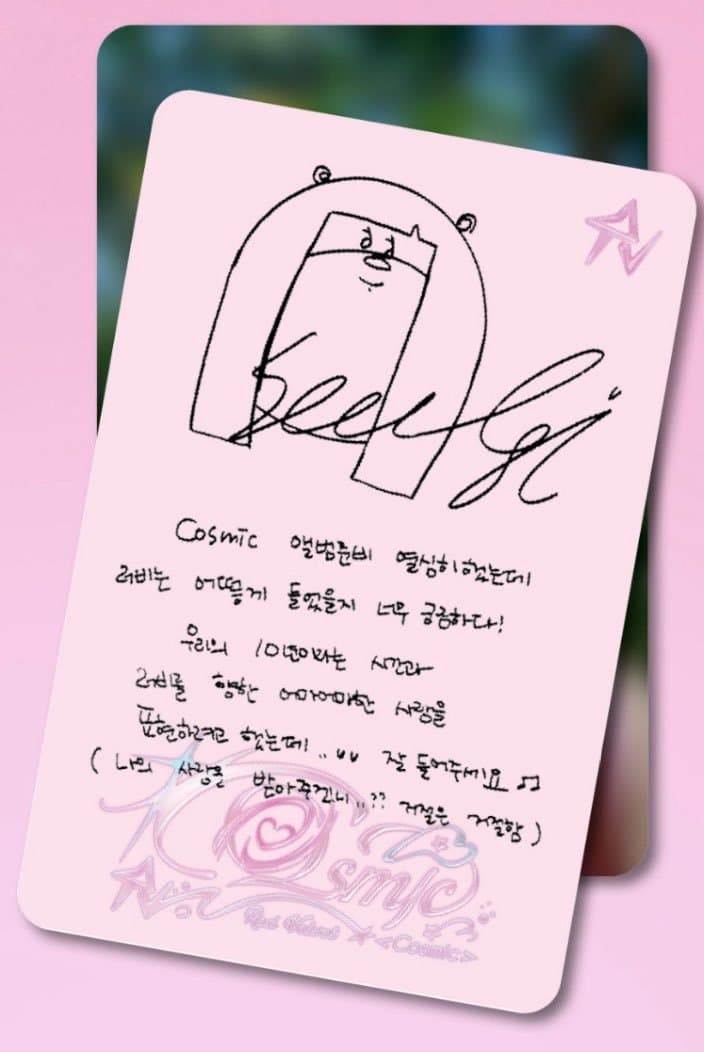 Seulgi
Cosmic 앨범준비 열심히했는데
러비는 어떻게 들었을지 너무 궁금하다!
우리의 10년이라는 시간과
러비를 향한 어마어마한 사랑을
표현하려고 했는데..ㅠㅠ 잘 들어주세요 ♫
( 나의 사랑을 받아주겠니..?? 거절은 거절함 )
Cosmic
Red Velvet <Cosmic>